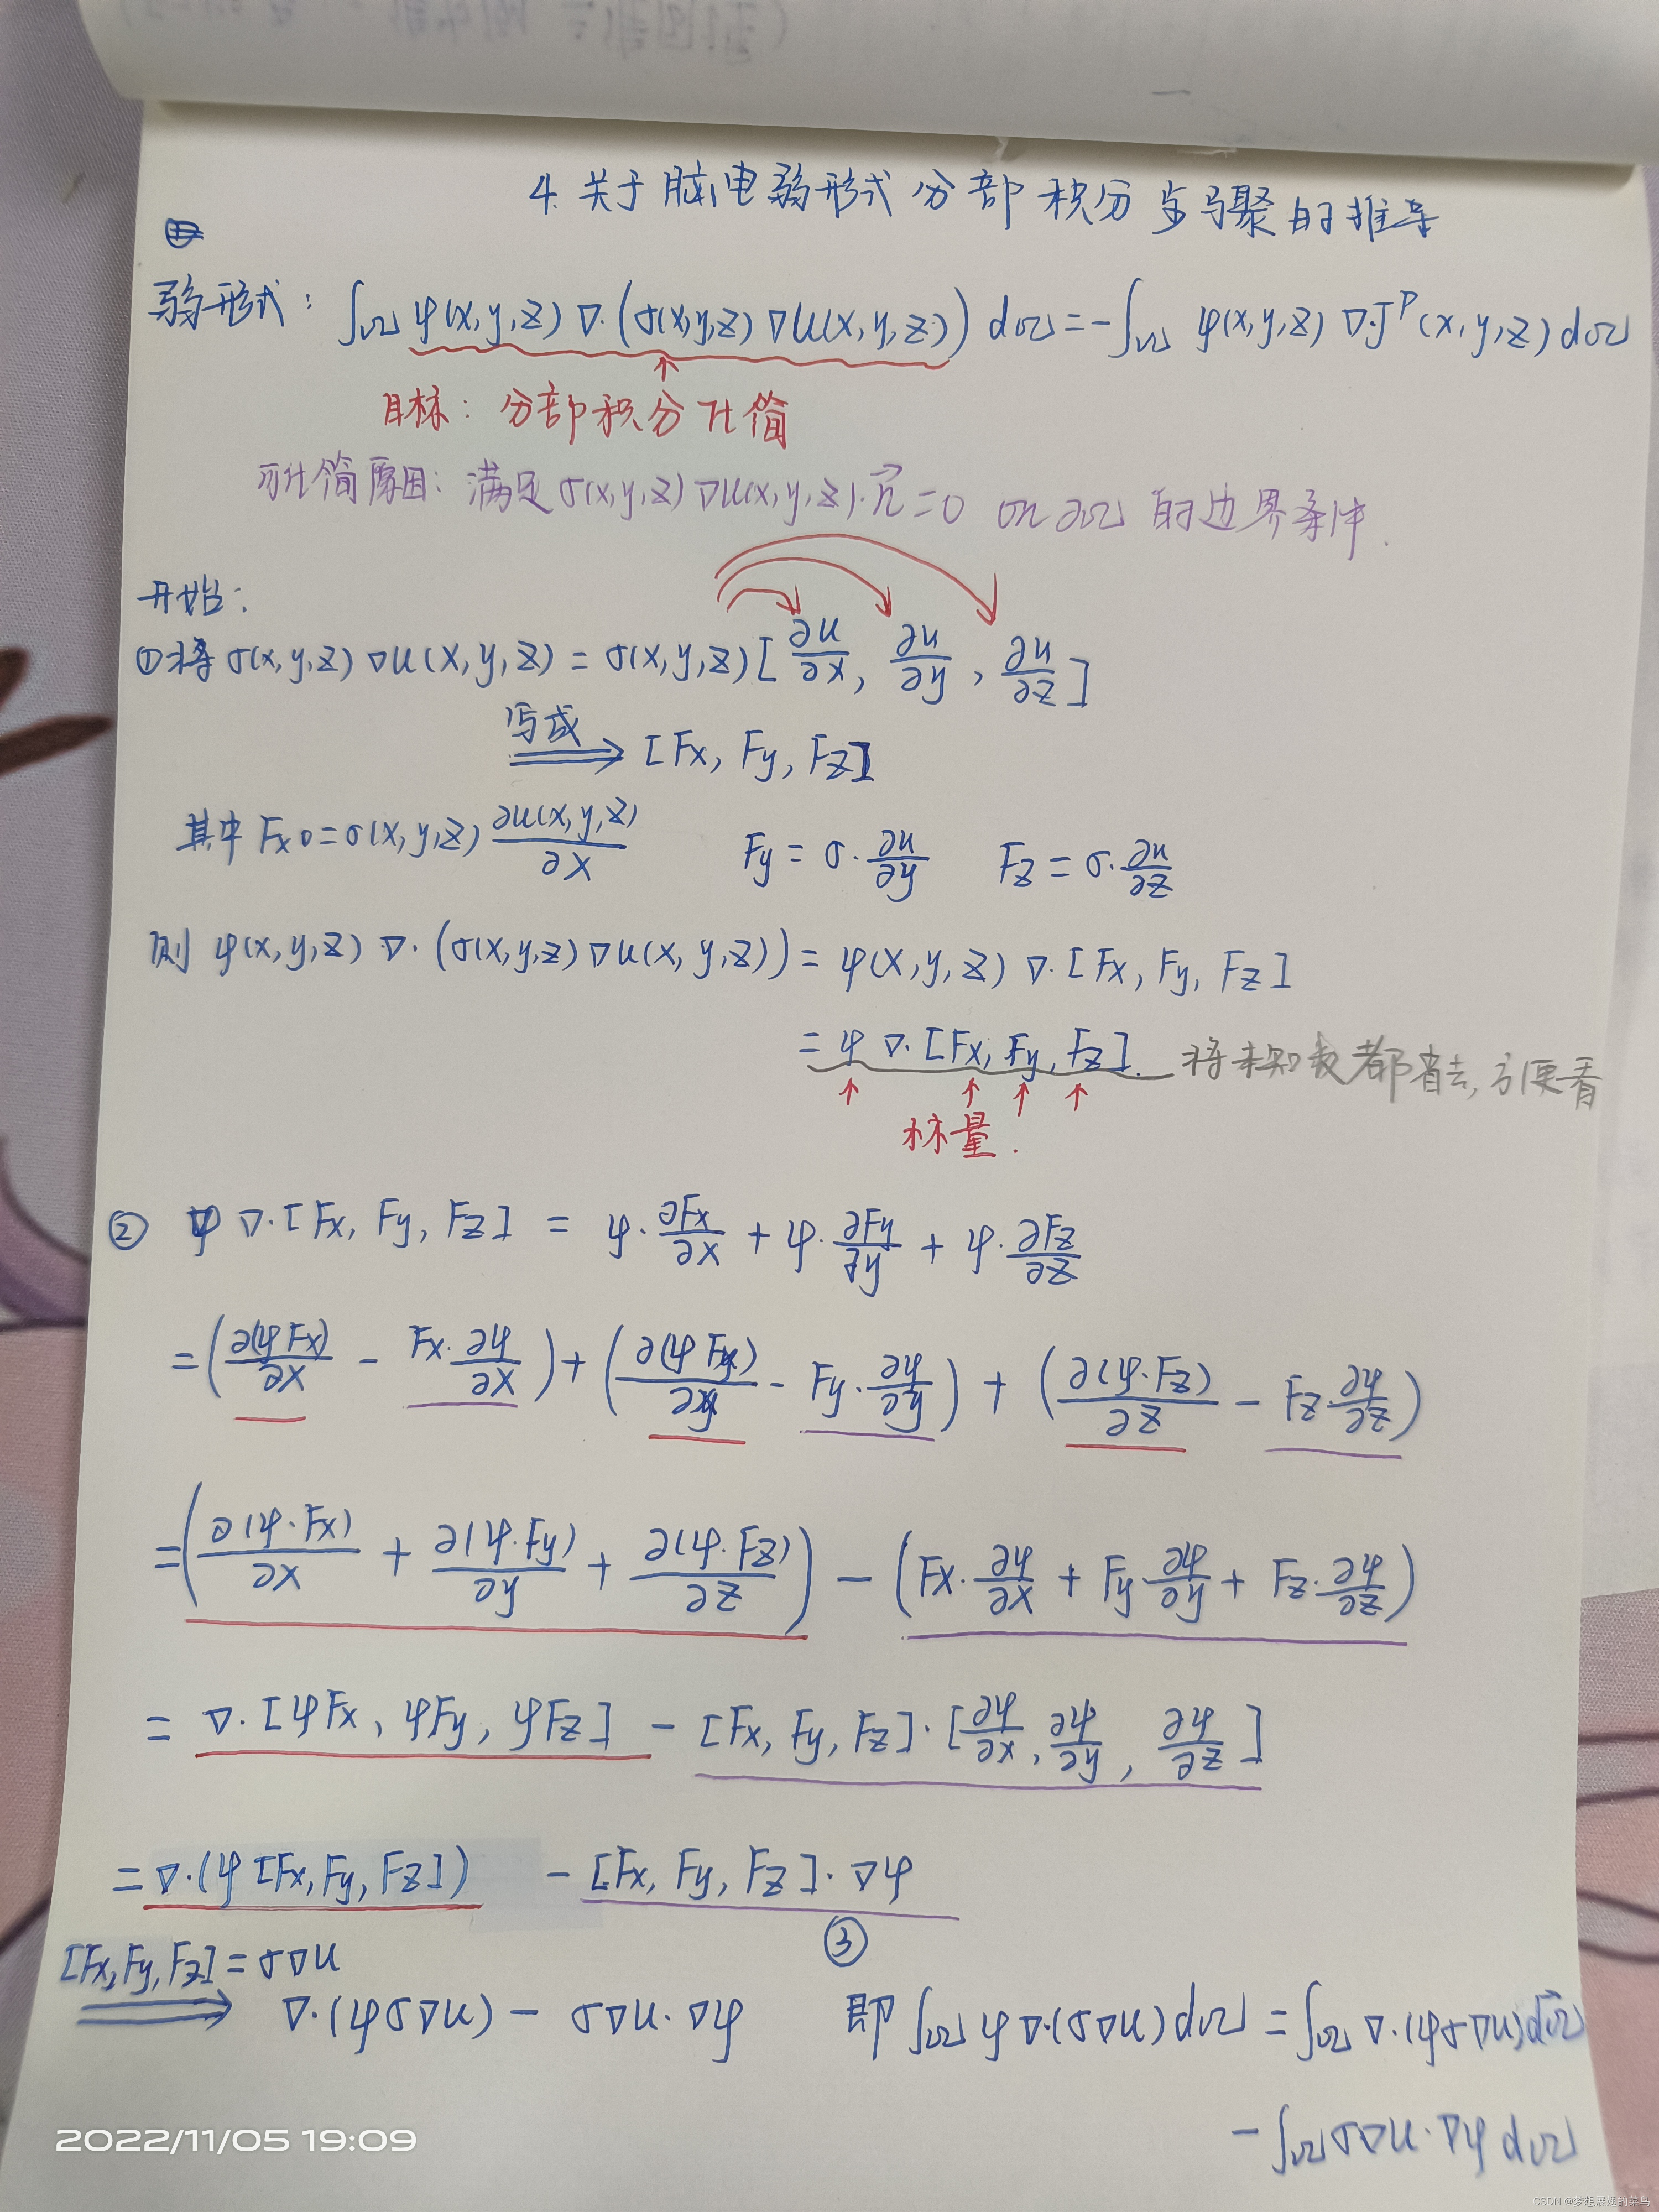 4. 关于脑电弱形式分部积分步骤的推导
弱形式: ∫Ω φ(x,y,z) ∇·(σ(x,y,z) ∇u(x,y,z)) dΩ = -∫Ω φ(x,y,z) ∇·J^P(x,y,z) dΩ
↑
目标: 分部积分化简
可化简原因: 满足 σ(x,y,z) ∇u(x,y,z)·n⃗ = 0 on ∂Ω 的边界条件.
开始:
①将 σ(x,y,z) ∇u(x,y,z) = σ(x,y,z) [∂u/∂x, ∂u/∂y, ∂u/∂z]
写成 ⟹ [Fx, Fy, Fz]
其中 Fx = σ(x,y,z) ∂u(x,y,z)/∂x Fy = σ·∂u/∂y Fz = σ·∂u/∂z
则 φ(x,y,z) ∇·(σ(x,y,z) ∇u(x,y,z)) = φ(x,y,z) ∇·[Fx, Fy, Fz]
= φ ∇·[Fx, Fy, Fz]. 将未知数都省去,方便看
↑ ↑ ↑ ↑
标量.
② φ ∇·[Fx, Fy, Fz] = φ·∂Fx/∂x + φ·∂Fy/∂y + φ·∂Fz/∂z
= (∂(φFx)/∂x - Fx·∂φ/∂x) + (∂(φFy)/∂y - Fy·∂φ/∂y) + (∂(φ·Fz)/∂z - Fz·∂φ/∂z)
= (∂(φ·Fx)/∂x + ∂(φ·Fy)/∂y + ∂(φ·Fz)/∂z) - (Fx·∂φ/∂x + Fy·∂φ/∂y + Fz·∂φ/∂z)
= ∇·[φFx, φFy, φFz] - [Fx, Fy, Fz]·[∂φ/∂x, ∂φ/∂y, ∂φ/∂z]
= ∇·(φ[Fx, Fy, Fz]) - [Fx, Fy, Fz]·∇φ
③
[Fx, Fy, Fz] = σ∇u
⟹ ∇·(φσ∇u) - σ∇u·∇φ 即 ∫Ω φ∇·(σ∇u)dΩ = ∫Ω ∇·(φσ∇u)dΩ
- ∫Ω σ∇u·∇φ dΩ
2022/11/05 19:09
CSDN @梦想展翅的菜鸟